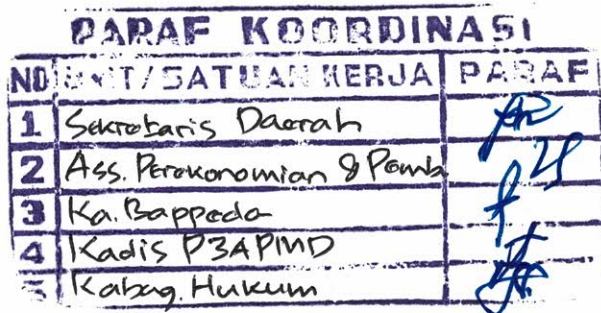 PARAF KOORDINASI
NO UNIT/SATUAN KERJA PARAF
1 Sekretaris Daerah
2 Ass. Perekonomian & Pemb
3 Ka. Bappeda
4 Kadis P3APMD
5 Kabag. Hukum